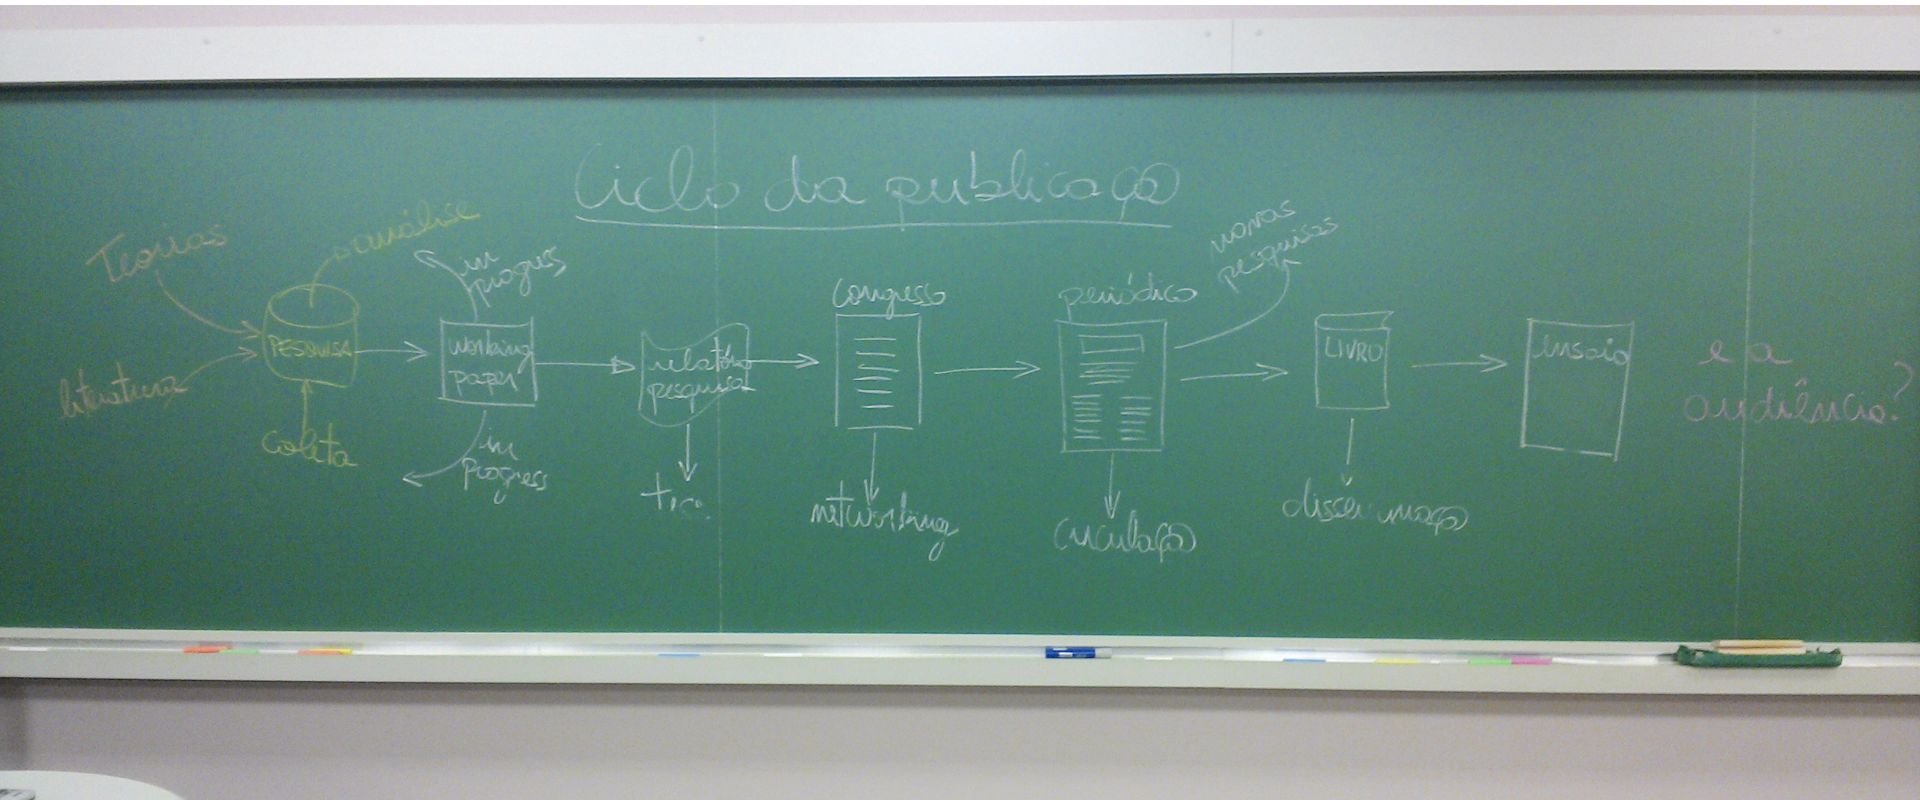 Ciclo da publicação
Teorias
literatura
análise
PESQUISA
coleta
in
progress
working
paper
in
progress
relatório
pesquisa
congresso
networking
periódico
circulação
novas
pesquisas
LIVRO
disseminação
ensaio
e a
audiência?